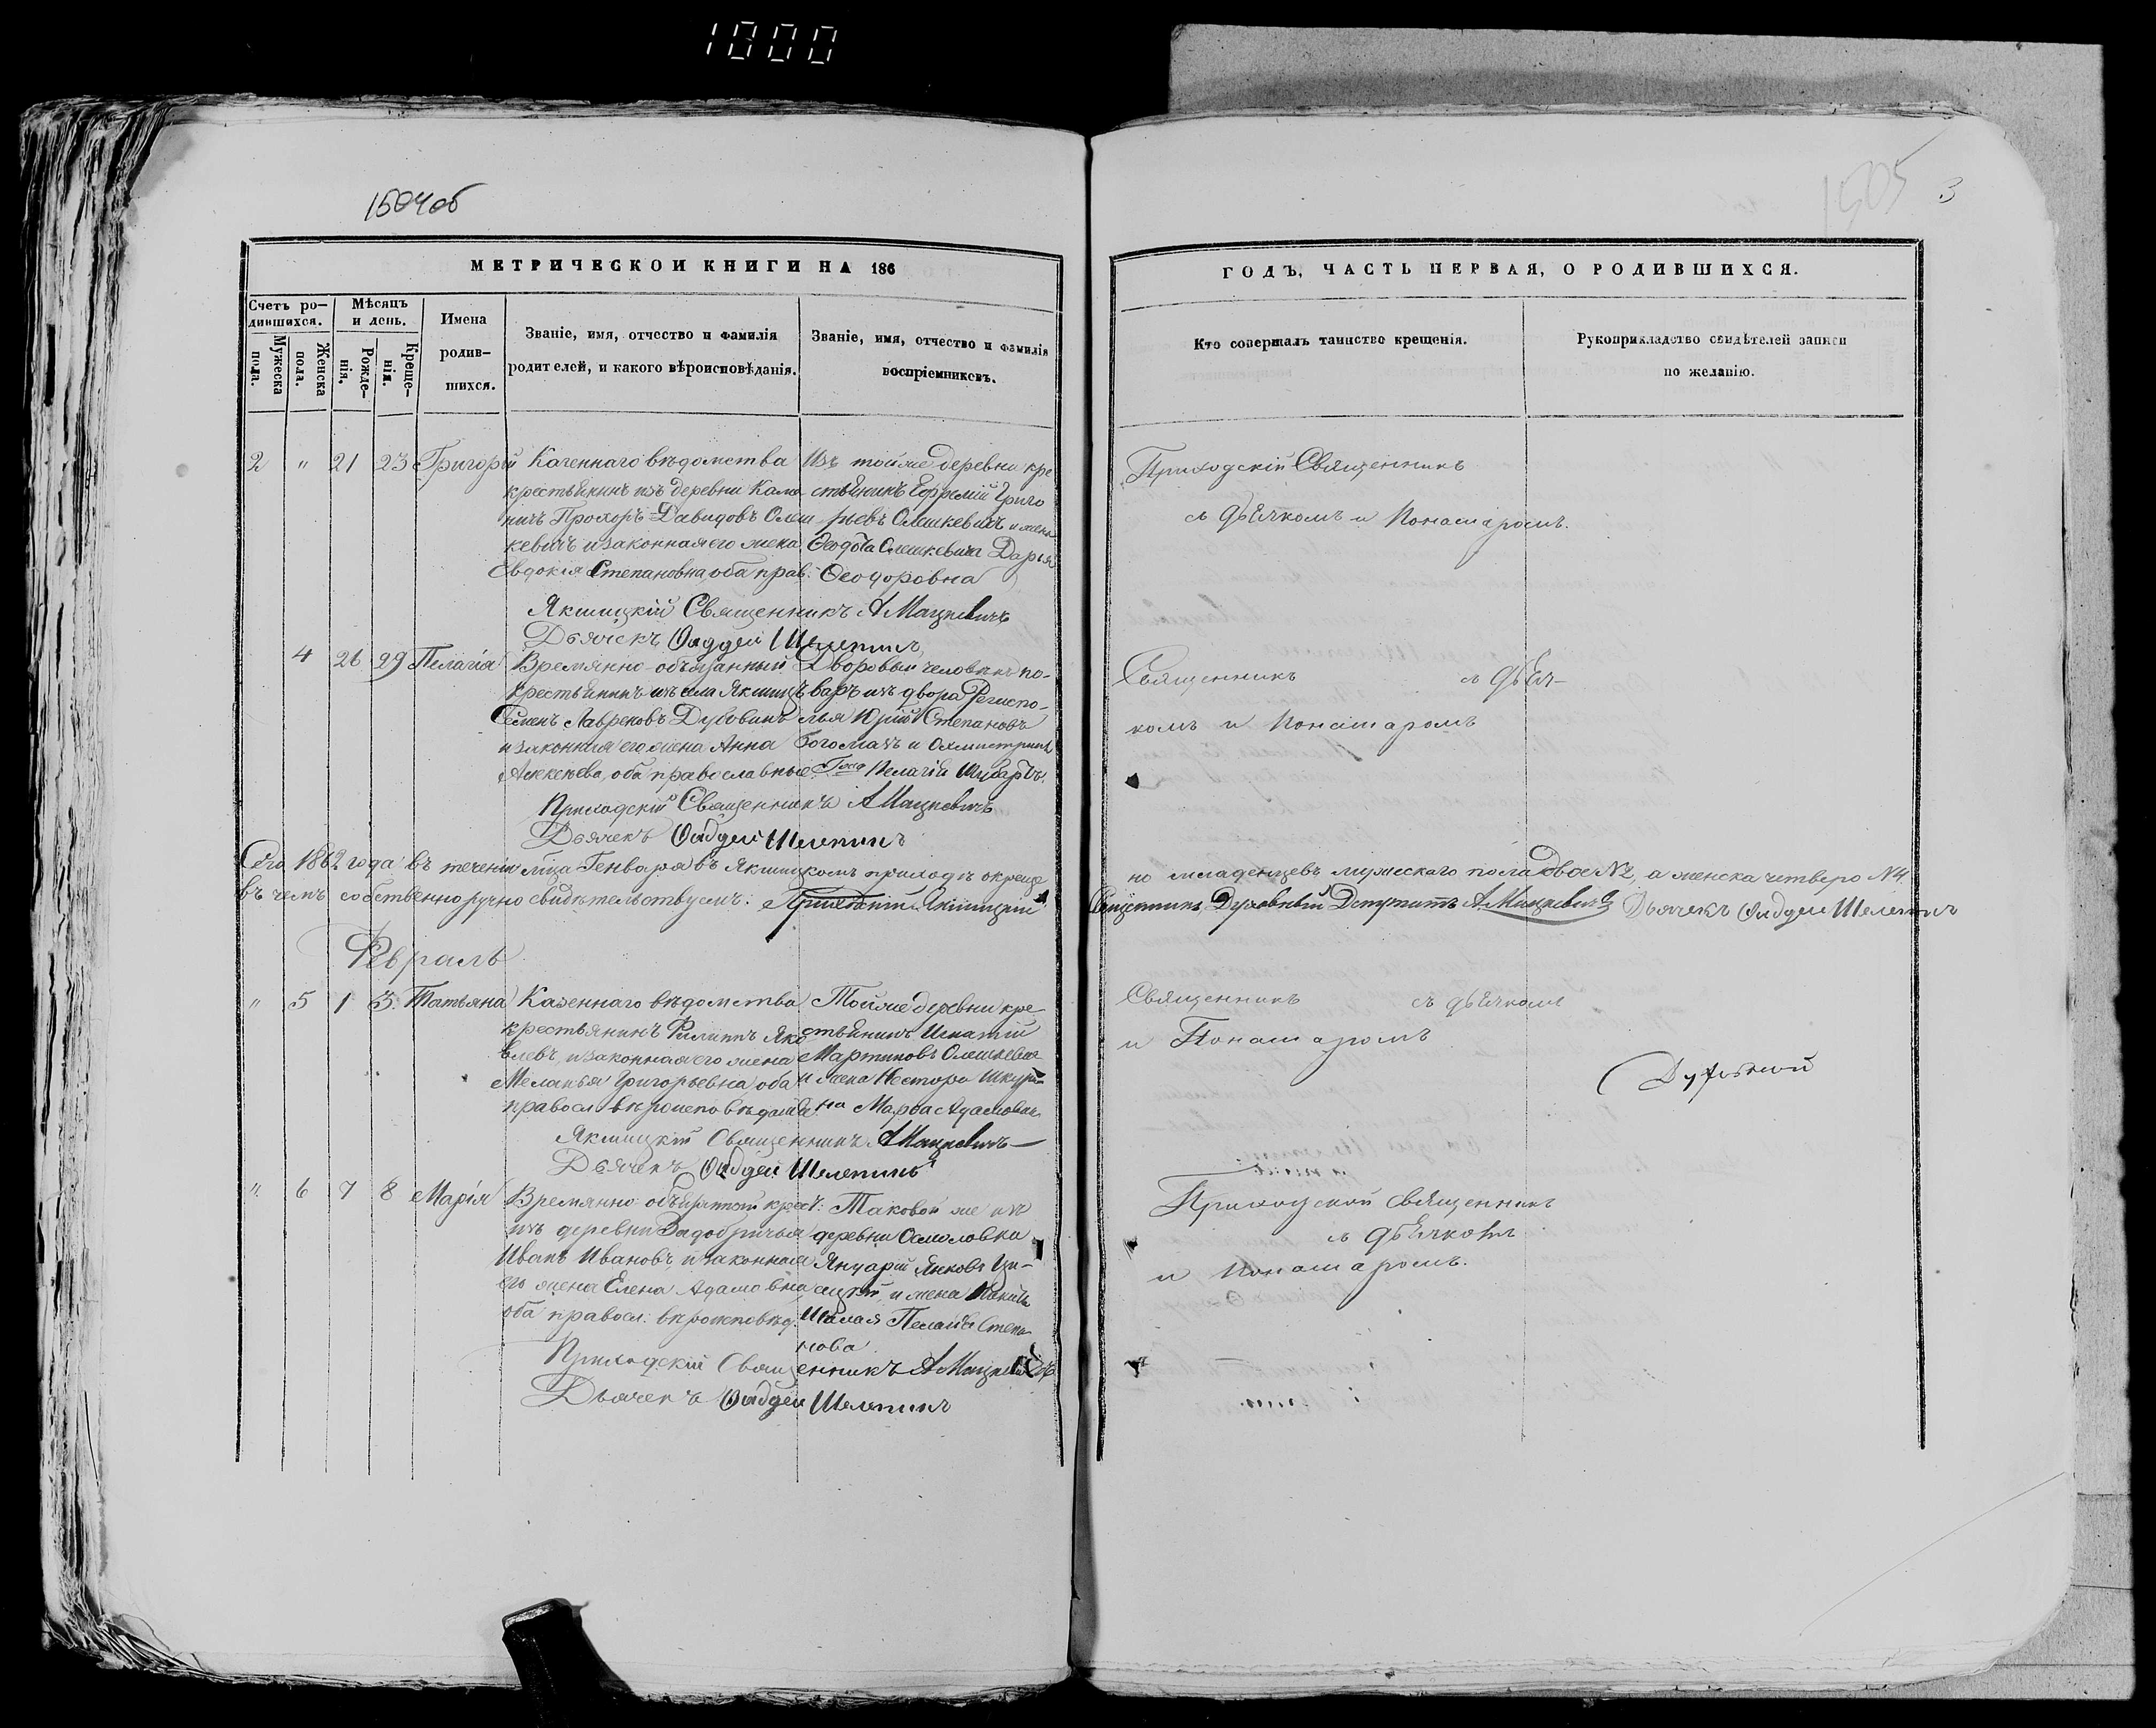 1000
1504об
1505
3
МЕТРИЧЕСКОЙ КНИГИ НА 186
Счетъ ро-
дившихся.
Мужеска
пола.
Женска
пола.
Мѣсяцъ
и день.
Рожде-
нія.
Креще-
нія.
Имена
родив-
шихся.
Званіе, имя, отчество и фамилія
родителей, и какого вѣроисповѣданія.
Званіе, имя, отчество и фамилія
воспріемниковъ.
2 " 21 23 Григорій
Казеннаго вѣдомства
крестьянинъ изъ деревни
Прохоръ Давидовъ Олеш
кевичъ и законная его жена
Евдокія Степановна, оба прав.
Изъ той же деревни кре
стьянинъ Ефремій Григо
рьевъ Олешкевичъ и жена
Олешкевича Дарія
Ѳеодоровна
Якшицкій Священникъ А Мацкевичъ
Дьячекъ Ѳаддей Шелепинъ
4 26 29 Пелагія
Времянно-объязанный
крестьянинъ изъ села Якшицъ
Семенъ Лавреновъ Дубовикъ
и законная его жена Анна
Алексѣева, оба православные
Дворовый человѣкъ по-
варъ изъ двора
Юрій Степановъ
Богомазъ и
Пелагія
Приходскій Священникъ А Мацкевичъ
Дьячекъ Ѳаддей Шелепинъ
Сего 1862 года въ теченіи мѣца Генваря въ Якшицкомъ приходѣ окреще
въ чемъ собственноручно свидѣтельствуемъ: Якшицкій
Февраль
" 5 1 3 Татьяна
Казеннаго вѣдомства
крестьянинъ Филиппъ Яко
влевъ, и законная его жена
Меланья Григорьевна оба
правосл. вѣроисповѣданія
Той же деревни кре
стьянинъ Игнатій
Мартиновъ Олешкевичъ
и жена Нестора Шкури-
на Марѳа Адамовна
Якшицкій Священникъ А Мацкевичъ
Дьячекъ Ѳаддей Шелепинъ
" 6 7 8 Марія
Времянно объязанный крест:
изъ деревни Задобричья
Иванъ Ивановъ и законная
его жена Елена Адамовна
оба правосл: вѣроисповѣд.
Таковой же изъ
деревни Осмоловки
Януарій Янковъ
и жена
Пелагія Степа
нова
Приходскій Священникъ А Мацкевичъ
Дьячекъ Ѳаддей Шелепинъ
ГОДЪ, ЧАСТЬ ПЕРВАЯ, О РОДИВШИХСЯ.
Кто совершалъ таинство крещенія.
Рукоприкладство свидѣтелей записи
по желанію.
Приходскій Священникъ
съ дьячкомъ и Понамаромъ.
Священникъ съ дьяч-
комъ и Понамаромъ
но младенцевъ мужескаго пола двое №2, а женска четверо №4.
Священникъ, Духовный Депутатъ А. Мацкевичъ Дьячекъ Ѳаддей Шелепинъ
Священникъ съ дьячкомъ
и Понамаромъ
Духовной
Приходской священникъ
съ дьячкомъ
и Понамаромъ.